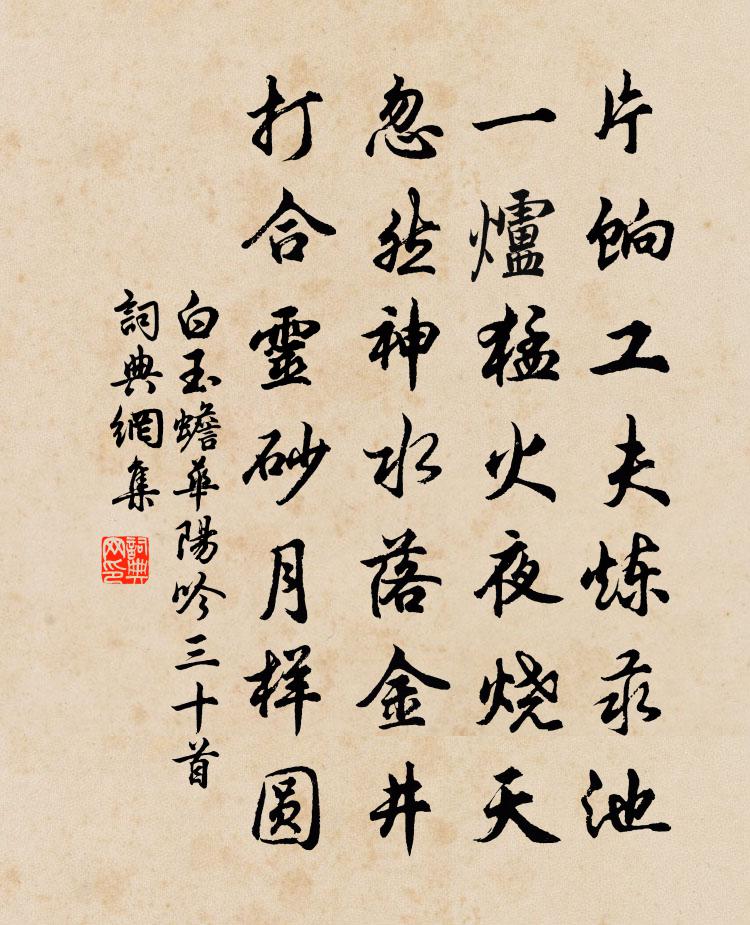 片餉工夫炼汞池
一爐猛火夜烧天
忽然神水落金井
打合靈砂月样圆
白玉蟾華陽吟三十首
詞典網集
詞典网印